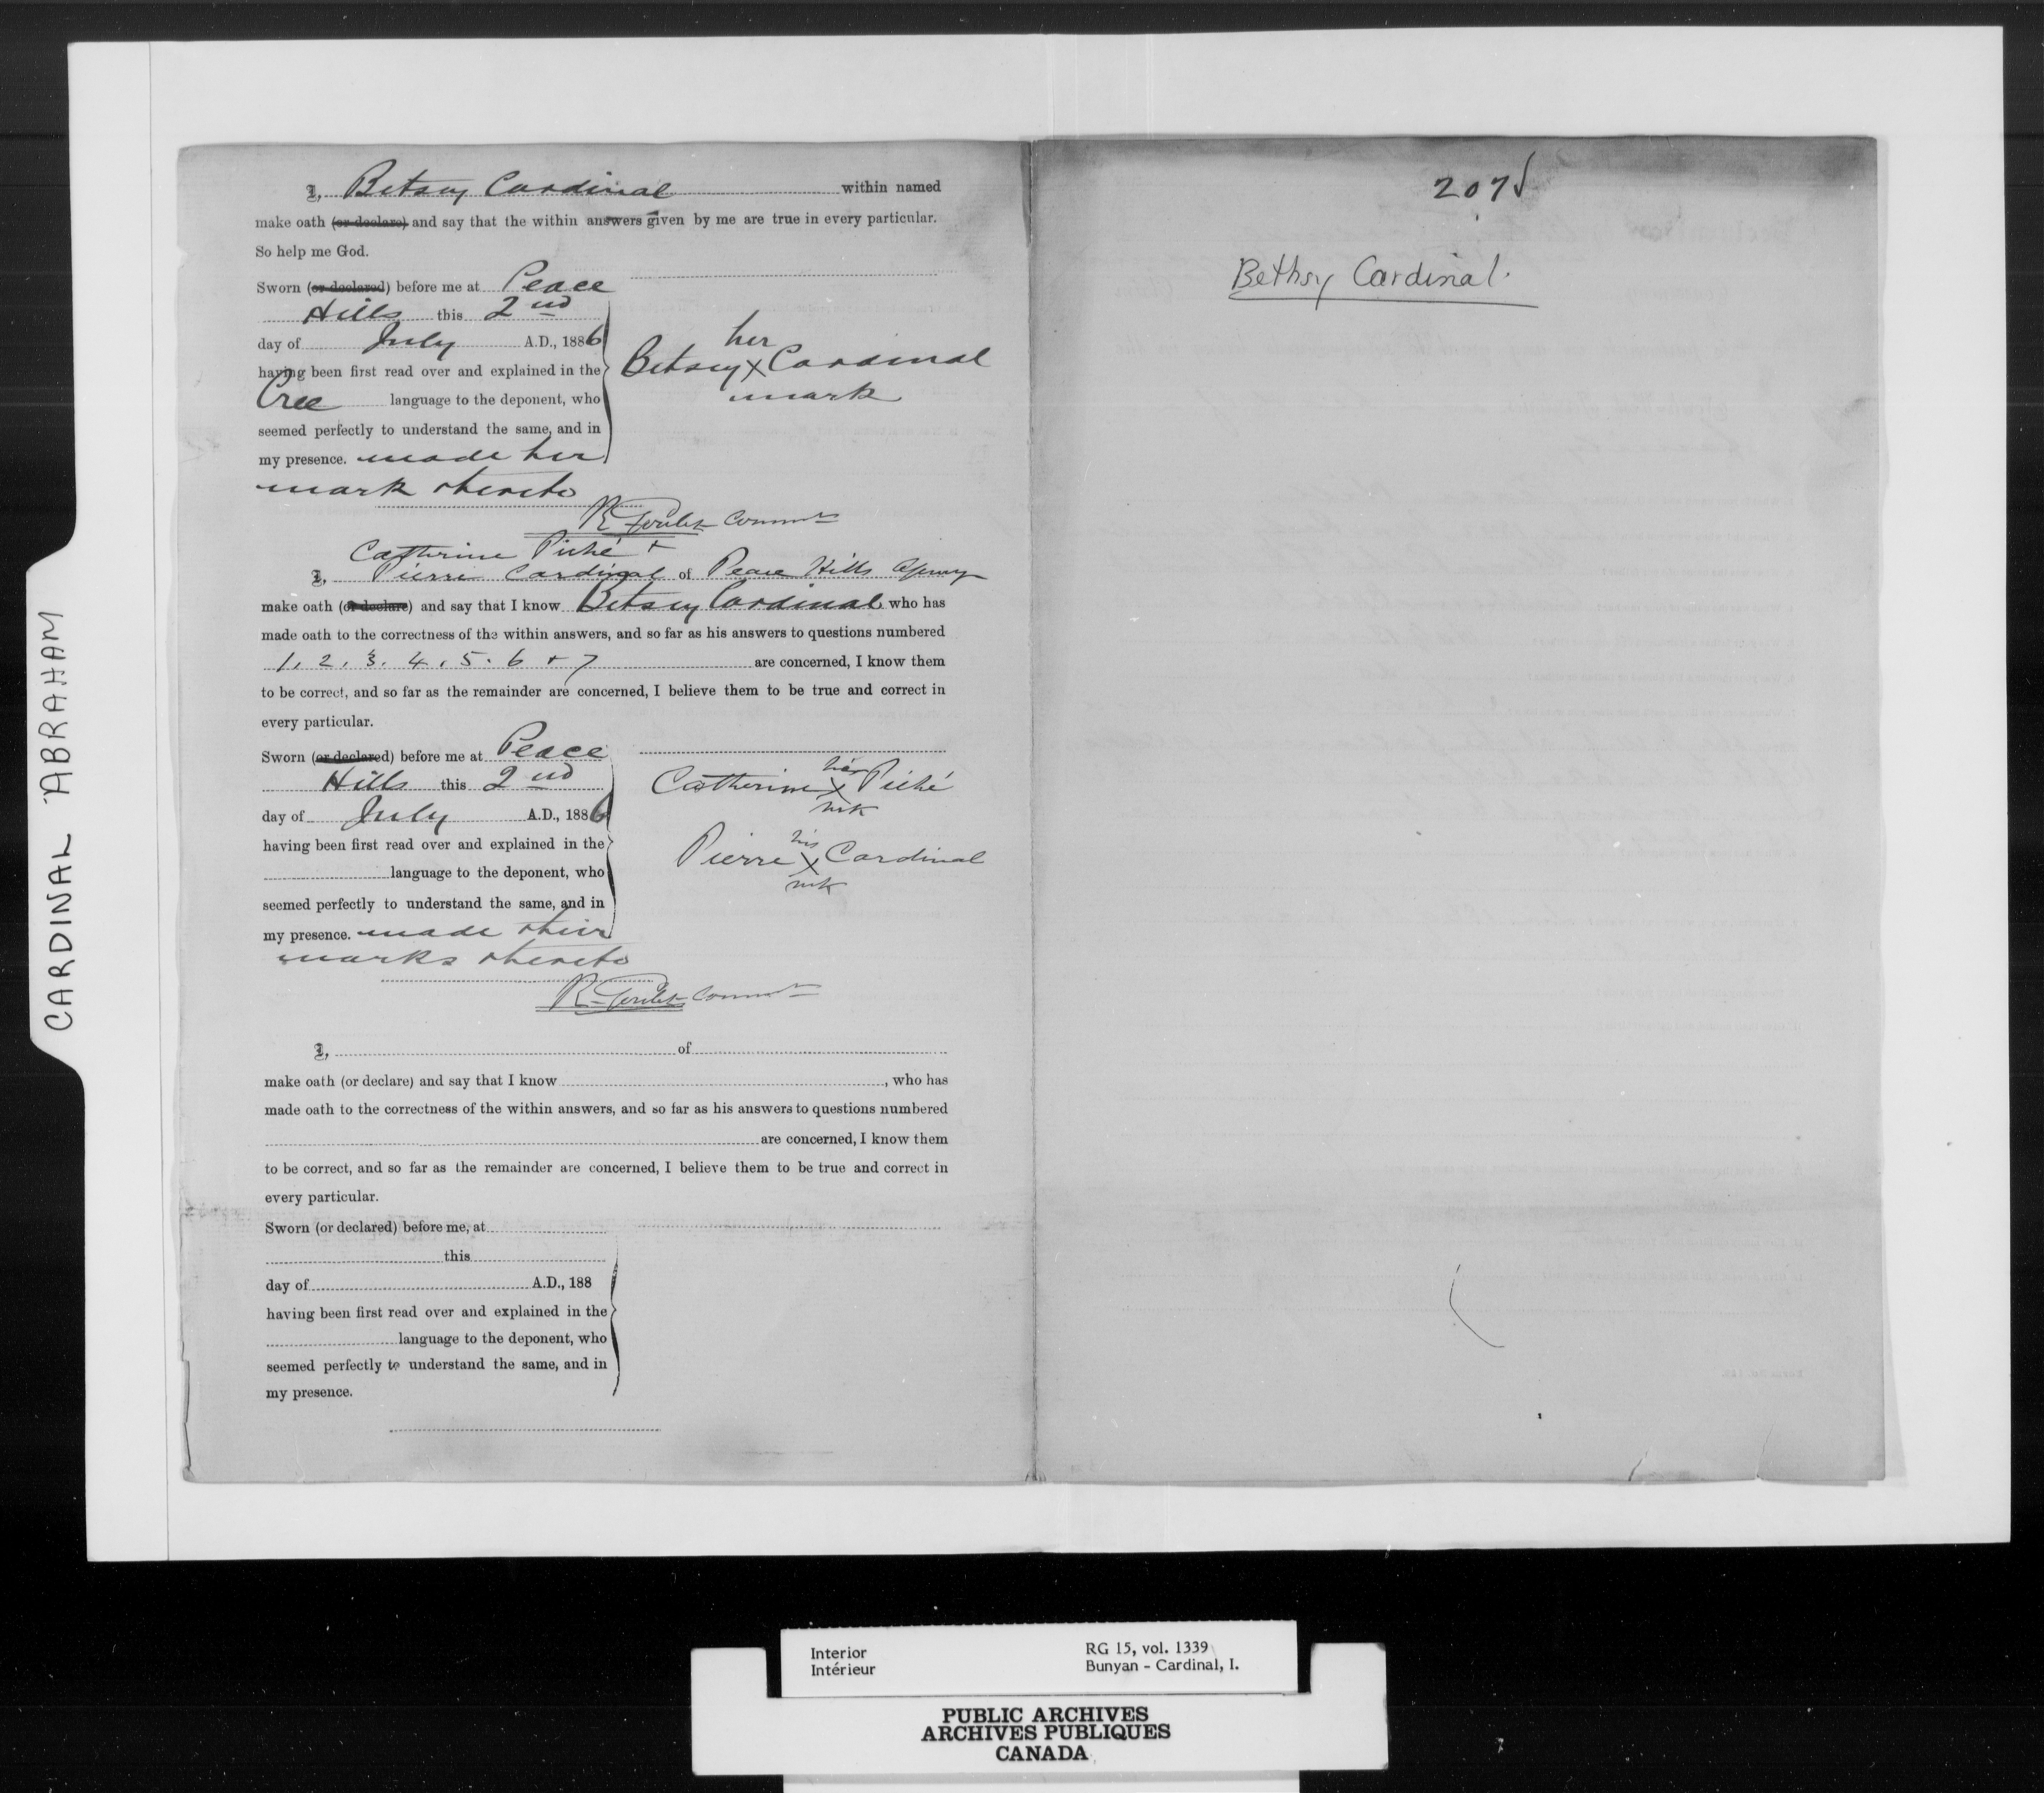 CARDINAL ABRAHAM
I, Betsey Cardinal within named
make oath (or declare) and say that the within answers given by me are true in every particular.
So help me God.
Sworn (or declared) before me at Peace
Hills this 2nd
day of July A.D., 1886
having been first read over and explained in the
Cree language to the deponent, who
seemed perfectly to understand the same, and in
my presence. made her
mark thereto
her
Betsey X Cardinal
mark
R Goulet Commr
Catherine Piché +
I, Pierre Cardinal of Peace Hills Agency
make oath (or declare) and say that I know Betsey Cardinal who has
made oath to the correctness of the within answers, and so far as his answers to questions numbered
1, 2, 3, 4, 5, 6 + 7 are concerned, I know them
to be correct, and so far as the remainder are concerned, I believe them to be true and correct in
every particular.
Sworn (or declared) before me at Peace
Hills this 2nd
day of July A.D., 1886
having been first read over and explained in the
language to the deponent, who
seemed perfectly to understand the same, and in
my presence. made their
marks thereto
her
Catherine X Piché
mk
his
Pierre X Cardinal
mk
R Goulet Commr
I, of
make oath (or declare) and say that I know , who has
made oath to the correctness of the within answers, and so far as his answers to questions numbered
are concerned, I know them
to be correct, and so far as the remainder are concerned, I believe them to be true and correct in
every particular.
Sworn (or declared) before me, at
this
day of A.D., 188
having been first read over and explained in the
language to the deponent, who
seemed perfectly to understand the same, and in
my presence.
207
Bethsy Cardinal.
Interior
Intérieur
RG 15, vol. 1339
Bunyan - Cardinal, I.
PUBLIC ARCHIVES
ARCHIVES PUBLIQUES
CANADA